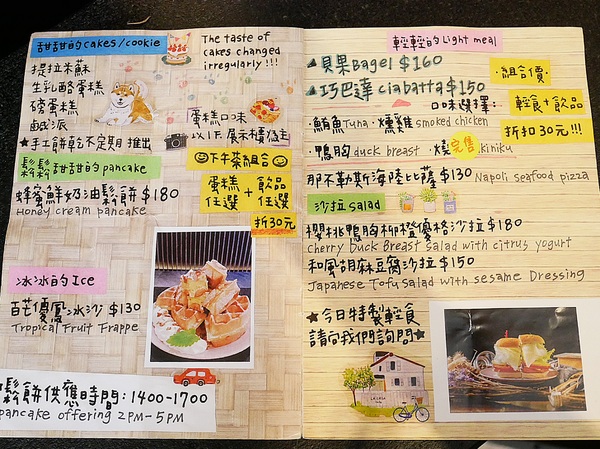 甜甜的cakes/cookie
The taste of
cakes changed
irregularly!!!
提拉米蘇
生乳酪蛋糕
磅蛋糕
鹹派
★手工餅乾不定期推出
蛋糕口味
以下展示櫃為主
鬆鬆甜甜的pancake
蜂蜜鮮奶油鬆餅$180
Honey cream pancake
下午茶組合
蛋糕+飲品
任選 任選
折30元
冰冰的Ice
百芒優鳳冰沙$130
Tropical Fruit Frappe
鬆餅供應時間:1400-1700
pancake offering 2PM-5PM
輕輕的Light meal
貝果Bagel $160
巧巴達ciabatta$150
組合價
輕食+飲品
折扣30元!!!
口味選擇:
·鮪魚Tuna·燻雞smoked chicken
·鴨胸duck breast·燒 完售 kiniku
那不勒斯海陸比薩$130 Napoli seafood pizza
沙拉salad
櫻桃鴨胸柳橙優格沙拉$180
Cherry Duck Breast Salad with citrus yogurt
和風胡麻豆腐沙拉$150
Japanese Tofu Salad with sesame Dressing
★今日特製輕食
請向我們詢問★